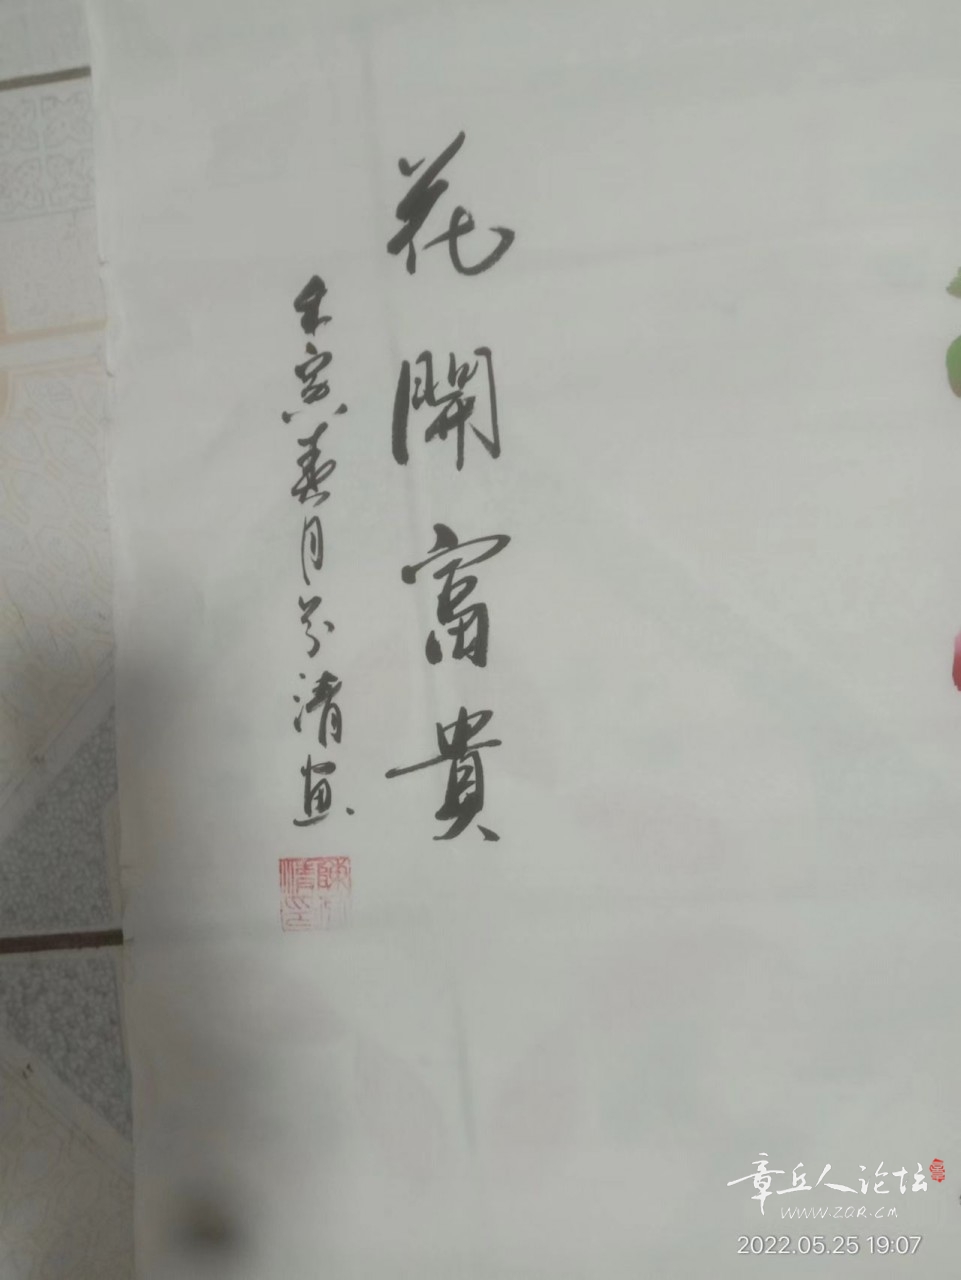 花開富貴
壬寅春月芬清画
章丘人论坛
www.ZQR.CM
2022.05.25 19:07